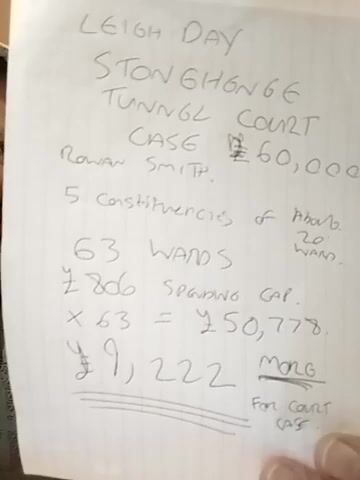 LEIGH DAY
STONEHENGE
TUNNEL COURT
CASE £60,000
ROWAN SMITH.
5 Constituencies of About
20 WARDS.
63 WARDS
£806 SPENDING CAP.
× 63 = £50,778.
£9,222 MORE
FOR COURT
CASE.